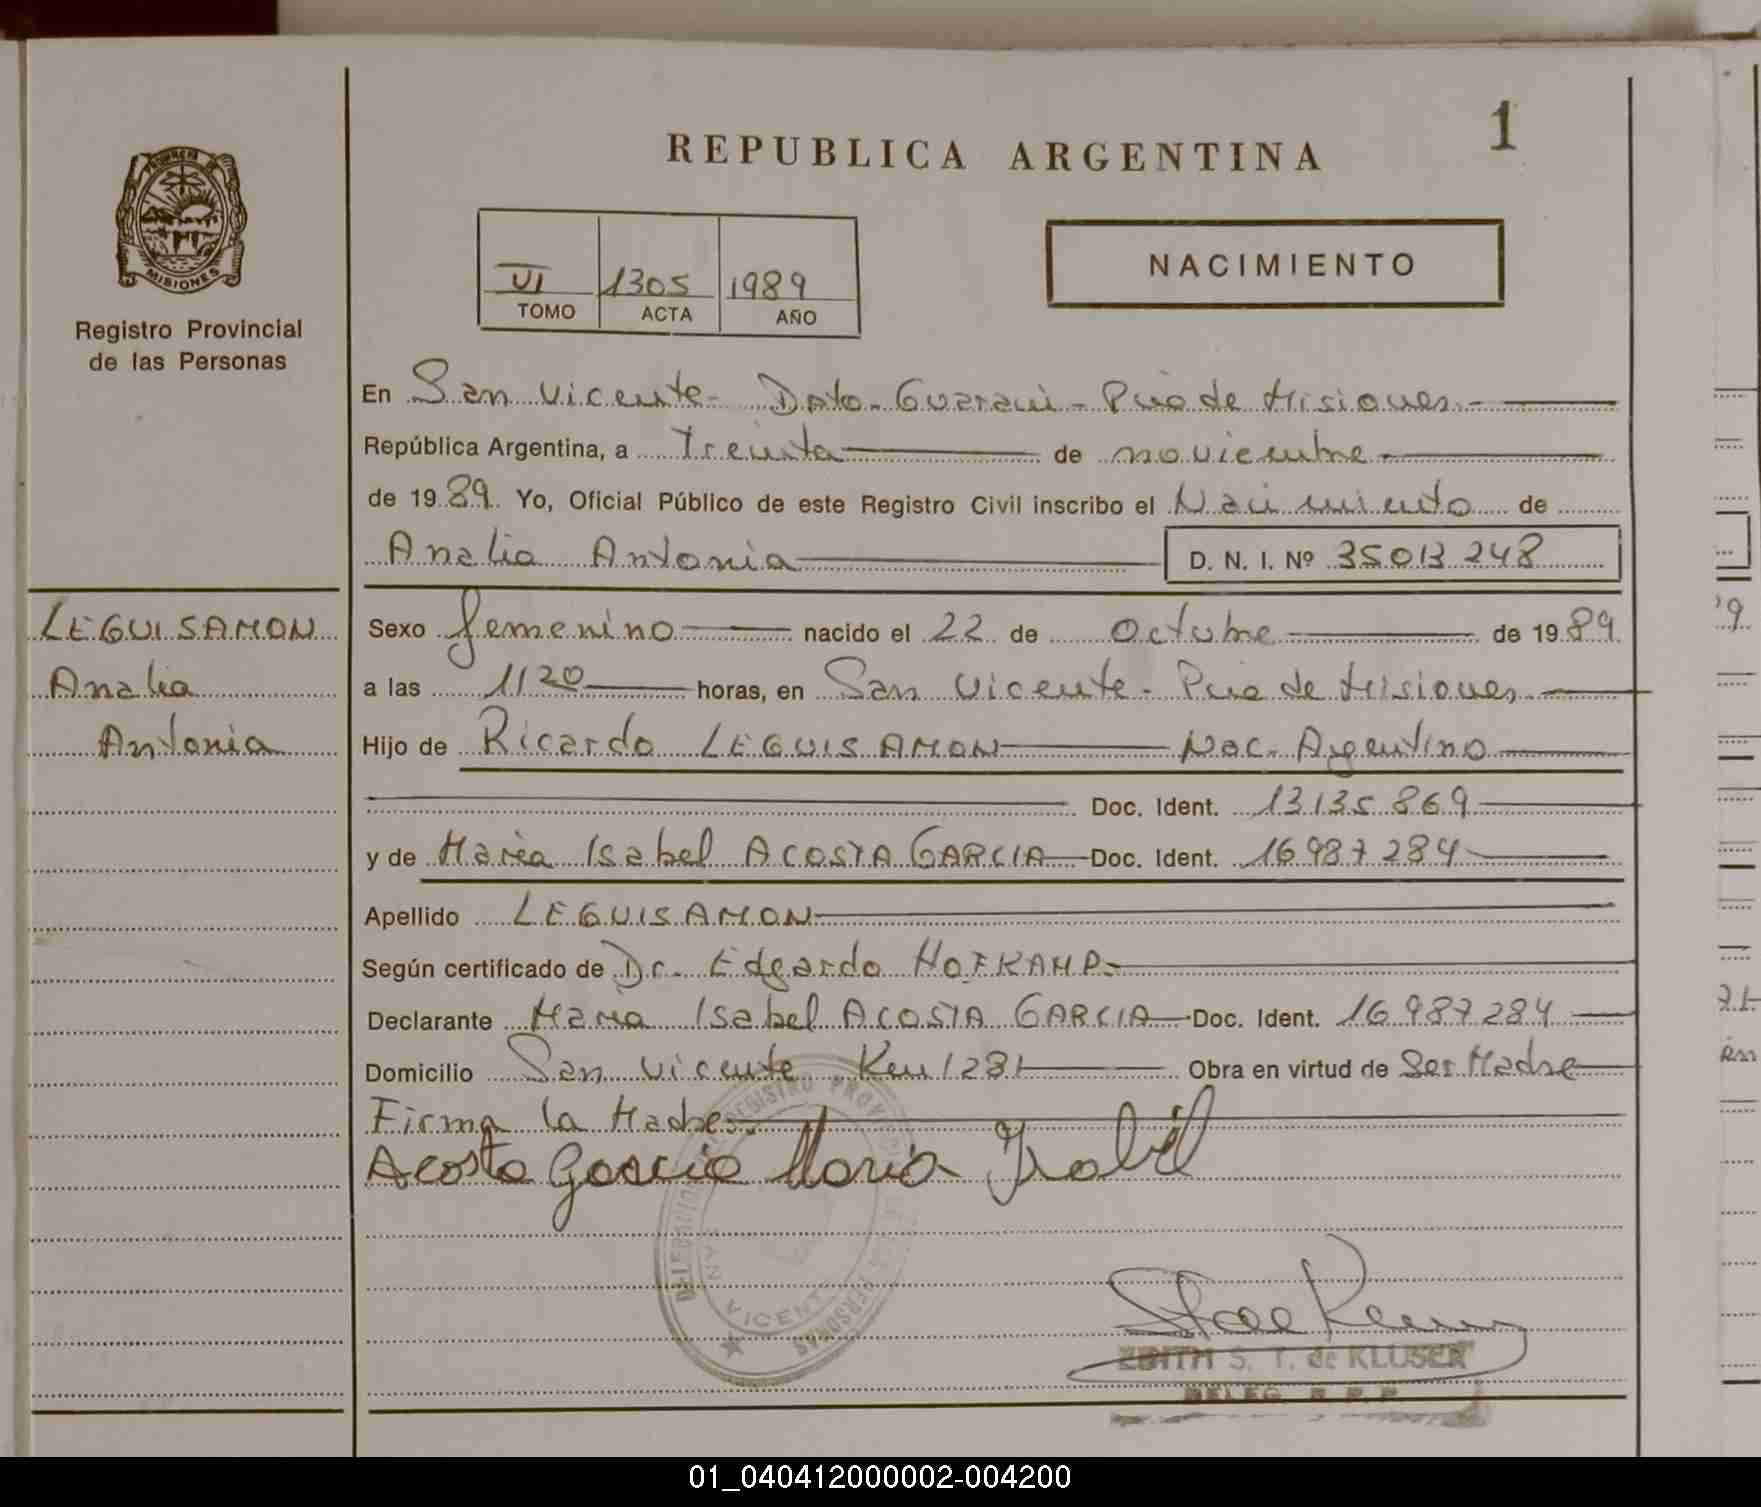 REPUBLICA ARGENTINA
1
PROVINCIA DE
MISIONES
Registro Provincial
de las Personas
VI 1305 1989
TOMO ACTA AÑO
NACIMIENTO
En San Vicente - Dpto. Guaraní - Pcia de Misiones.-
República Argentina, a treinta de noviembre.-
de 1989. Yo, Oficial Público de este Registro Civil inscribo el Nacimiento de
Analia Antonia D. N. I. Nº 35013248
LEGUISAMON
Analia
Antonia
Sexo femenino nacido el 22 de Octubre de 1989
a las 1120 horas, en San Vicente - Pcia de Misiones,
Hijo de Ricardo LEGUISAMON Nac. Argentino
Doc. Ident. 13.135.869
y de Maria Isabel ACOSTA GARCIA Doc. Ident. 16987284
Apellido LEGUISAMON
Según certificado de Dr. Edgardo HOFKAMP.-
Declarante Maria Isabel ACOSTA GARCIA Doc. Ident. 16.987.284
Domicilio San Vicente Km 1281 Obra en virtud de Ser Madre
Firma la Madre.
Acosta Garcia Maria Isabel
REGISTRO
PERSONAS
VICENTE
EDITH S. T. de KLUSER
DELEG. R. P. P.
01_040412000002-004200